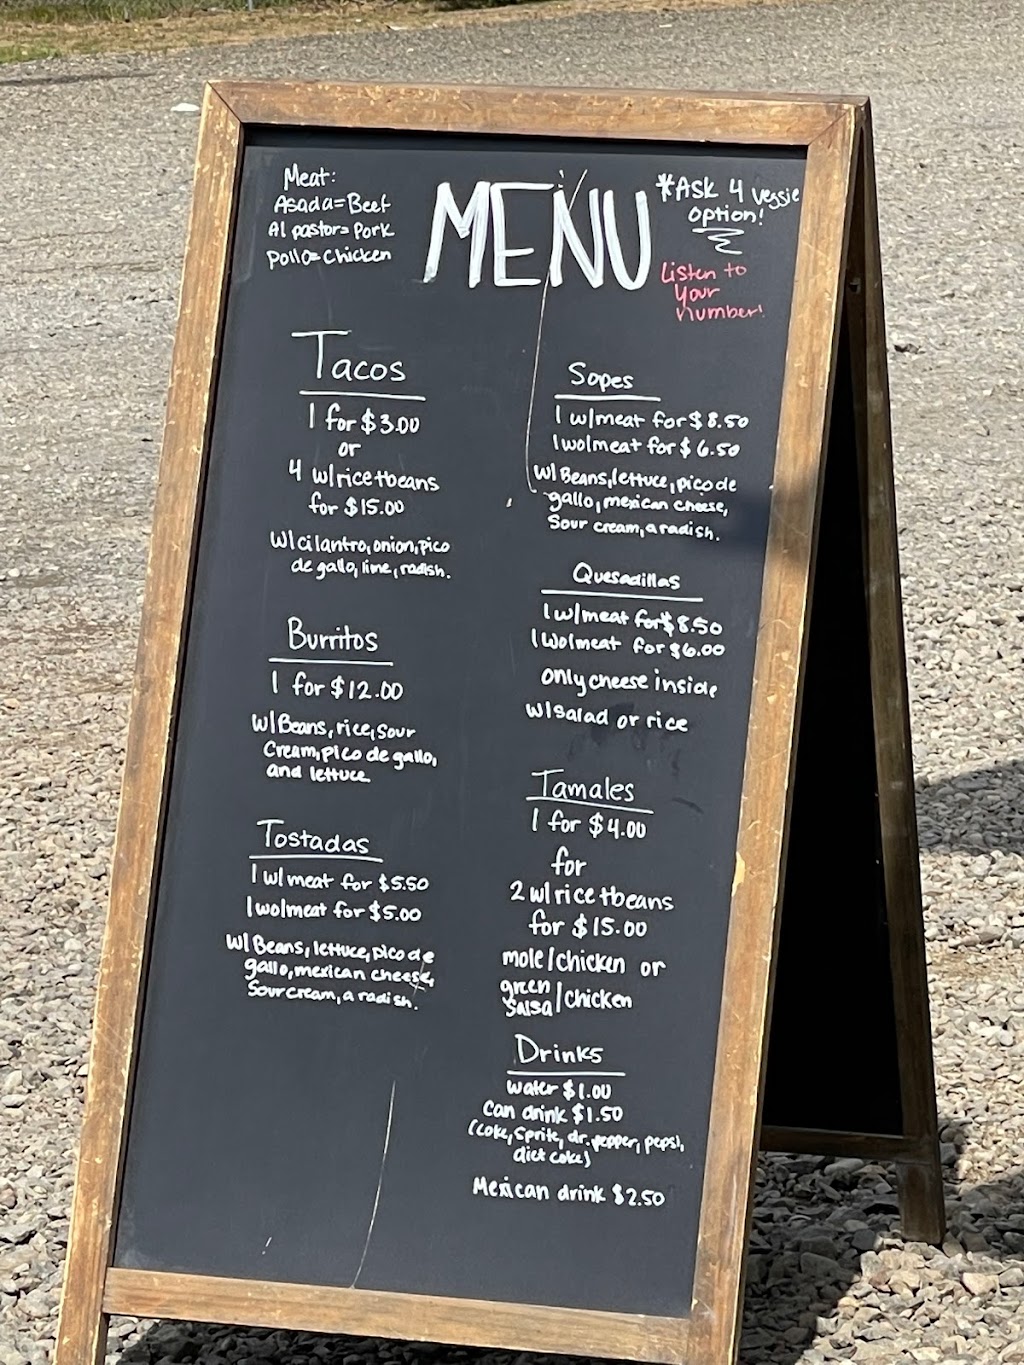 Meat:
Asada=Beef
Al pastor=Pork
Pollo=Chicken
MENU
*Ask 4 veggie
option!
Listen to
your
number!
Tacos
1 for $3.00
or
4 w/rice+beans
for $15.00
w/cilantro, onion, pico
de gallo, lime, radish.
Burritos
1 for $12.00
w/Beans, rice, sour
cream, pico de gallo,
and lettuce
Tostadas
1 w/meat for $5.50
1 wo/meat for $5.00
w/Beans, lettuce, pico de
gallo, mexican cheese,
sour cream, a radish.
Sopes
1 w/meat for $8.50
1 wo/meat for $6.50
w/Beans, lettuce, pico de
gallo, mexican cheese,
sour cream, a radish.
Quesadillas
1 w/meat for $8.50
1 wo/meat for $6.00
only cheese inside
w/salad or rice
Tamales
1 for $4.00
for
2 w/rice+beans
for $15.00
mole/chicken or
green
salsa/chicken
Drinks
water $1.00
can drink $1.50
(coke, sprite, dr. pepper, pepsi,
diet coke)
Mexican drink $2.50